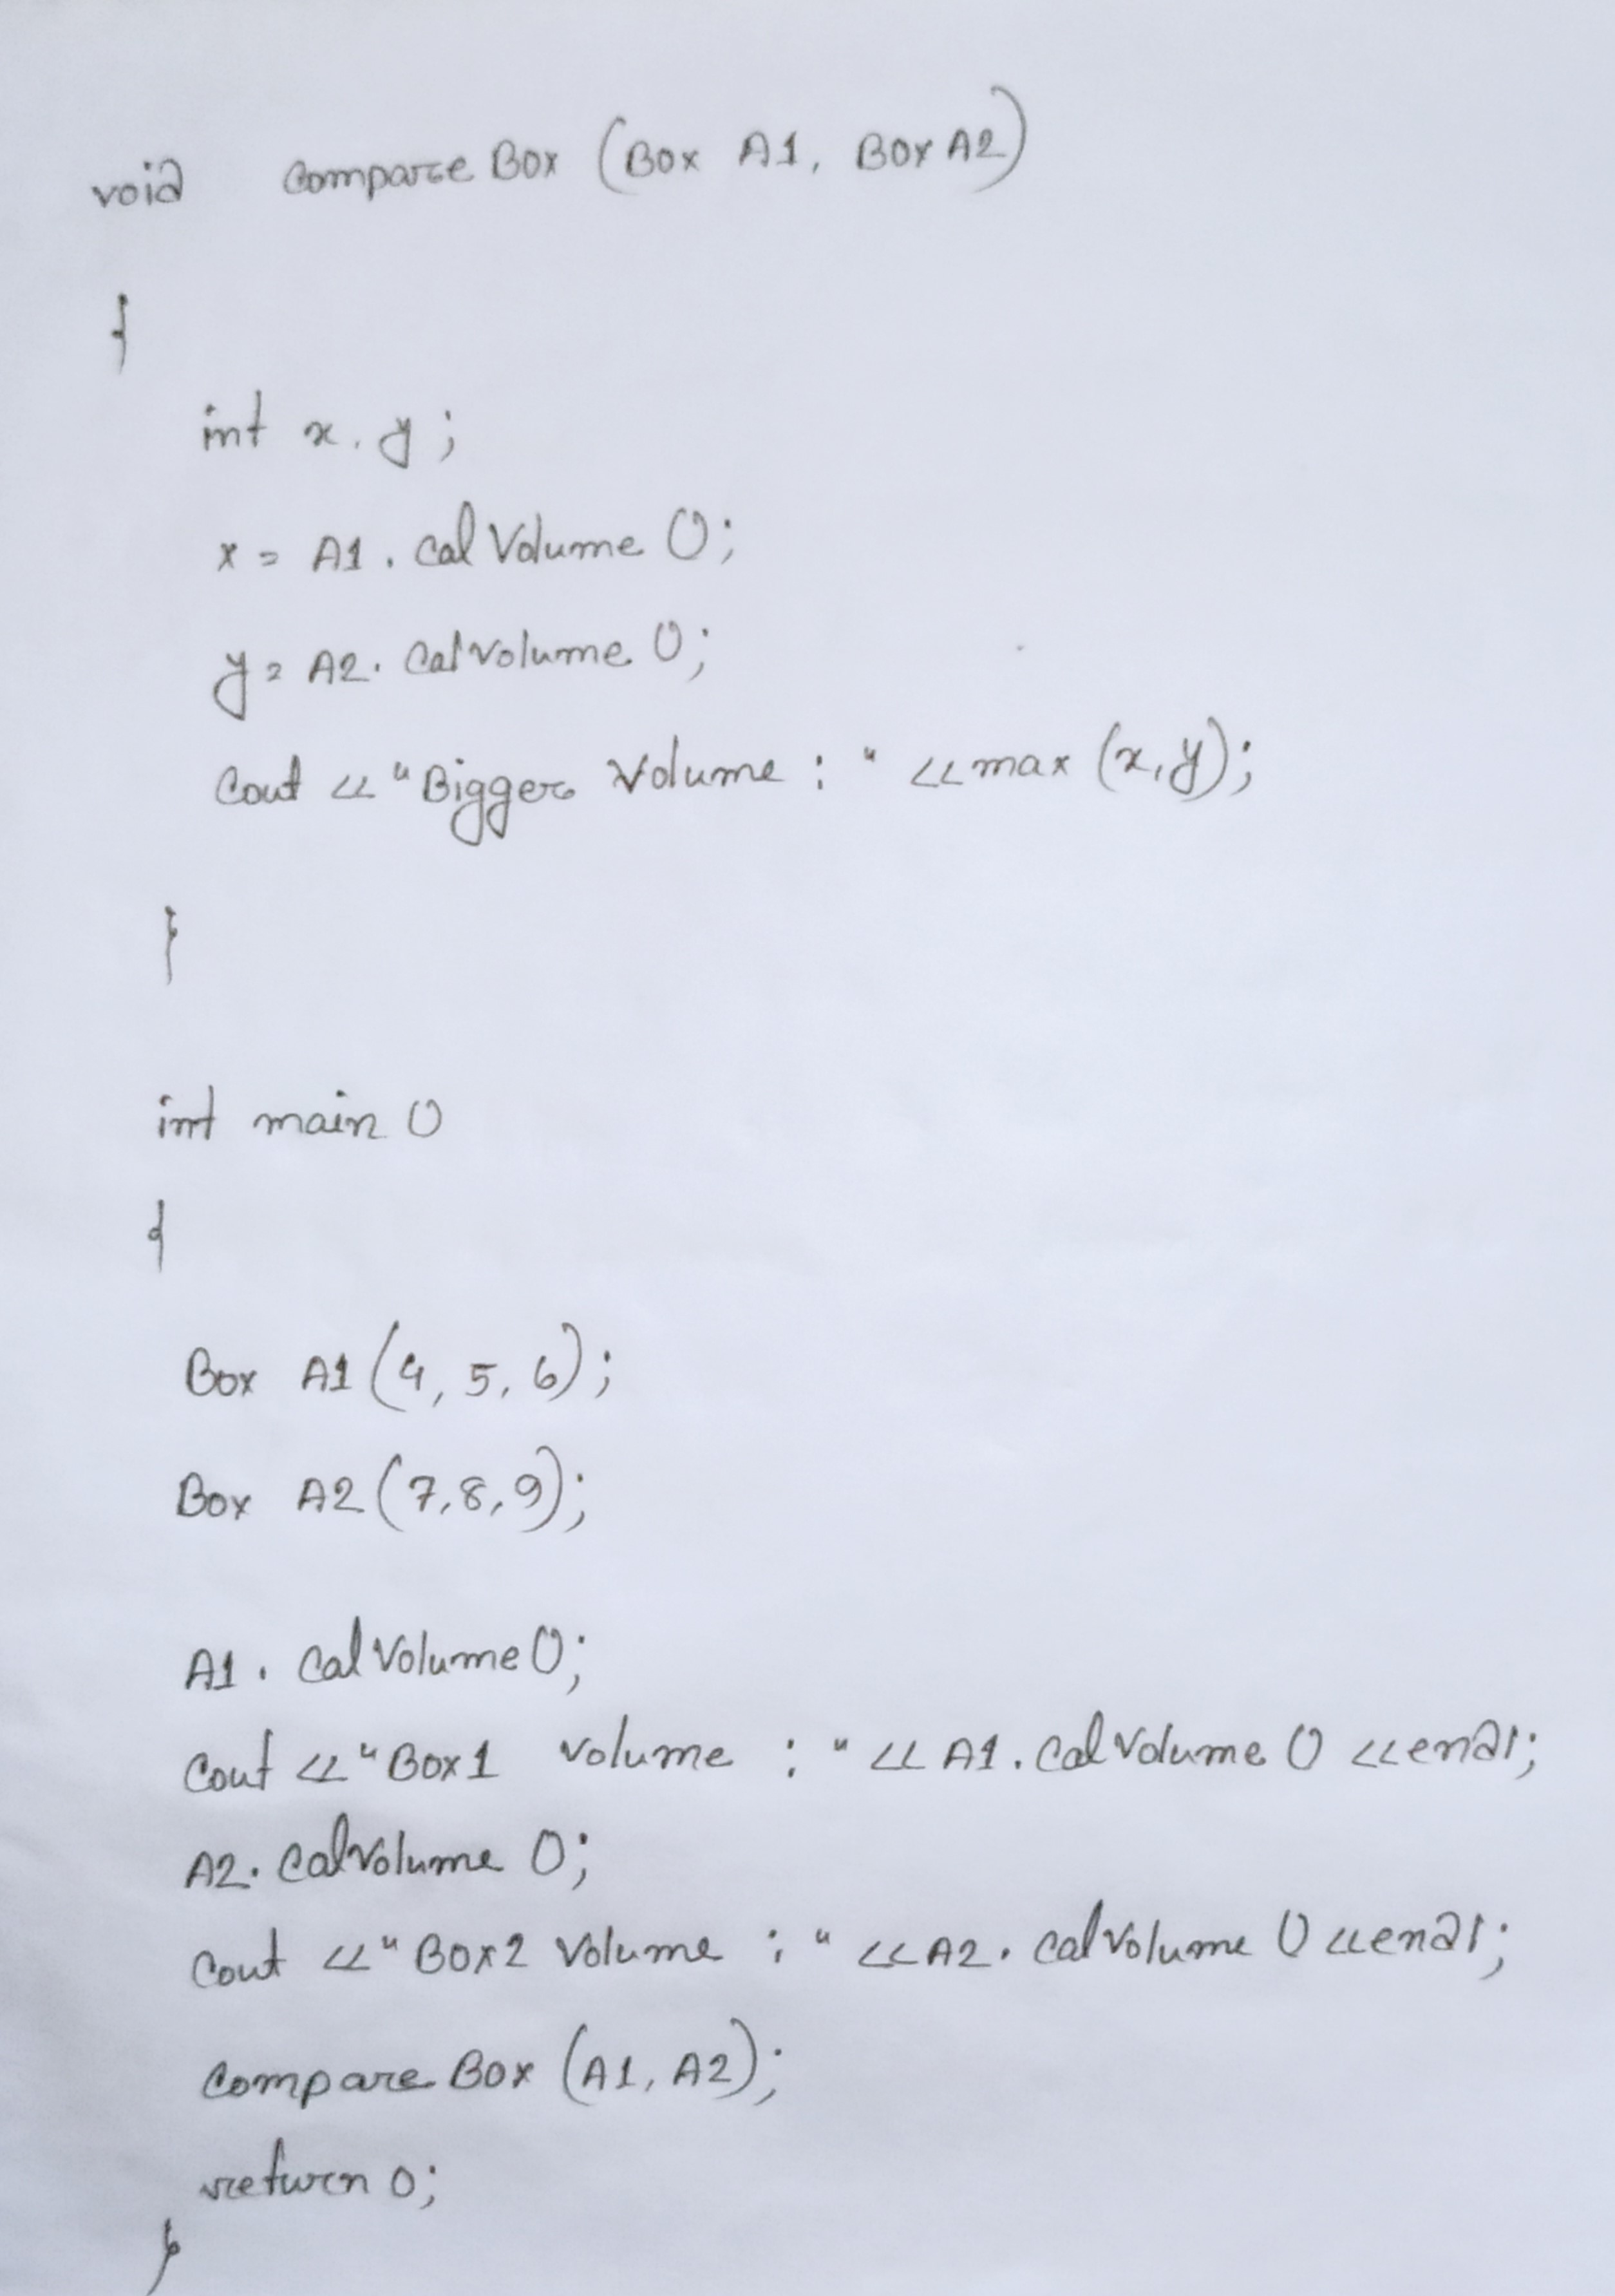 void compare Box (Box A1, Box A2)
{
int x, y;
x = A1. cal Volume ();
y = A2. cal volume ();
Cout << "Bigger Volume : " << max (x, y);
}
int main ()
{
Box A1 (4, 5, 6);
Box A2 (7, 8, 9);
A1. cal Volume ();
Cout << "Box1 volume : " << A1. cal Volume () << endl;
A2. cal Volume ();
Cout << "Box2 Volume : " << A2. cal Volume () << endl;
Compare Box (A1, A2);
return 0;
}